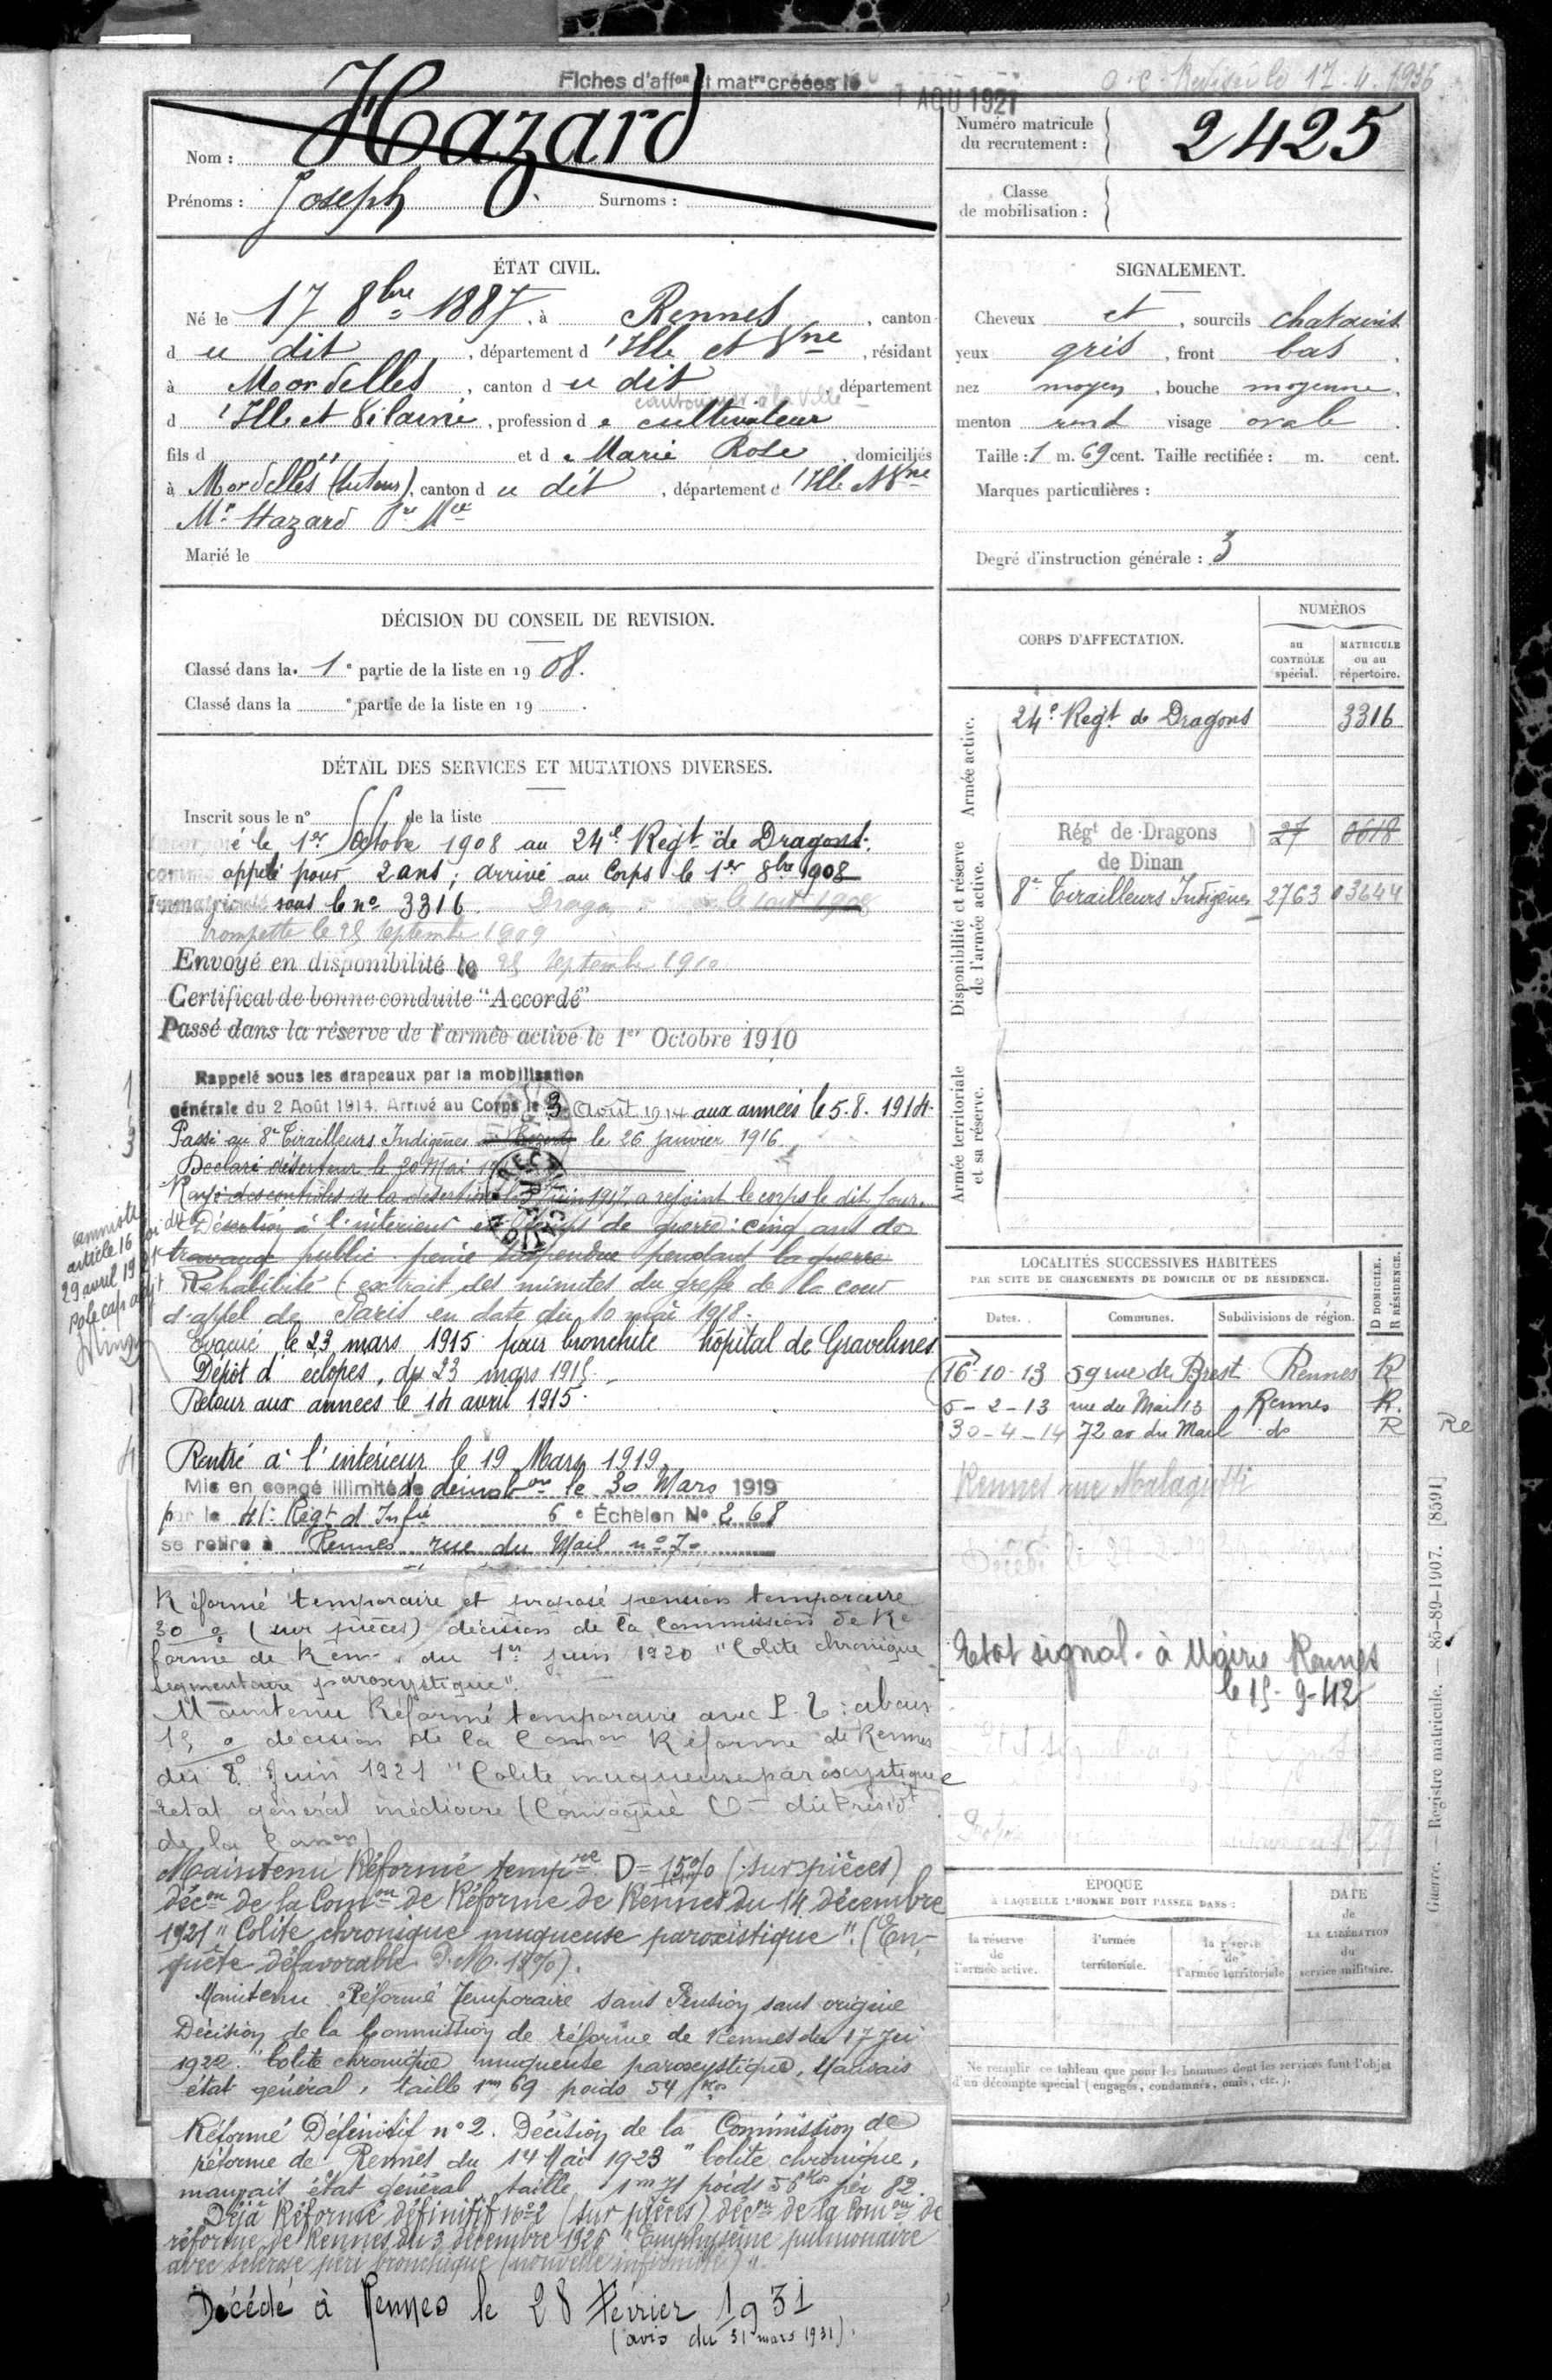 Fiches d'aff.on et mat.re créées le 1 AOU 1927
a. c. Revisé le 17. 4. 1936
Nom : Hazard
Prénoms : Joseph Surnoms :
Numéro matricule du recrutement : 2425
Classe de mobilisation :
ÉTAT CIVIL.
Né le 17 8bre 1887, à Rennes, canton
du dit, département d'Ille et Vne, résidant
à Mordelles, canton du dit, département
cantonnier à la ville
d'Ille et Vilaine, profession de cultivateur
fils d " et de Marie Rose, domiciliés
à Mordelles (tuteur), canton du dit, département d'Ille et Vne
Mr Hazard
Marié le
SIGNALEMENT.
Cheveux et, sourcils chatains
yeux gris, front bas
nez moyen, bouche moyenne
menton rond visage ovale
Taille : 1 m. 69 cent. Taille rectifiée : m. cent.
Marques particulières :
Degré d'instruction générale : 3
DÉCISION DU CONSEIL DE REVISION.
Classé dans la 1e partie de la liste en 1908.
Classé dans la e partie de la liste en 19 .
DÉTAIL DES SERVICES ET MUTATIONS DIVERSES.
Inscrit sous le n° de la liste
Incorporé le 1er Octobre 1908 au 24e Regt de Dragons.
comme appelé pour 2 ans ; arrivé au Corps le 1er 8bre 1908
Immatriculé sous le no 3316.
trompette le 25 Septembre 1909
Envoyé en disponibilité le 25 Septembre 1910
Certificat de bonne conduite "Accordé"
Passé dans la réserve de l'armée active le 1er Octobre 1910
Rappelé sous les drapeaux par la mobilisation
générale du 2 Août 1914. Arrivé au Corps le 3 Août 1914 aux armées le 5. 8. 1914.
Passé au 8e Tirailleurs Indigènes le 26 janvier 1916.
Déclaré déserteur le 20 Mai 19
Rayé des contrôles de la désertion le Juin 1917, a rejoint le corps le dit jour.
Désertion à l'intérieur en temps de guerre : cinq ans de
travaux public peine suspendue pendant la guerre
Rehabilité (extrait des minutes du greffe de la cour
d'appel de Paris en date du 10 mai 1918.
amnistié
article 16 loi du
29 avril 1921
Evacué le 23 mars 1915 pour bronchite hôpital de Gravelines
Dépôt d'éclopés, du 23 mars 1915
Retour aux armées le 14 avril 1915
Rentré à l'intérieur le 19 Mars 1919,
Mis en congé illimité de démob.on le 30 Mars 1919
par le 41e Régt d'Infie 6e Échelon No 268
se retire à Rennes rue du Mail n° 70
Réformé temporaire et proposé pension temporaire
30 % (sur pièces) décision de la Commission de Ré-
forme de Renn. du 1er juin 1920 "Colite chronique
segmentaire paroxystique".
Maintenu Réformé temporaire avec P. T : abais
15 % décision de la Comon Réforme de Rennes
du 8 Juin 1921 "Colite muqueuse paroxystique
état général médiocre (Convoqué
de la Comon)
Maintenu Réformé tempre D = 15% (sur pièces)
décon de la Comon de Réforme de Rennes du 14 décembre
1921 "Colite chronique muqueuse paroxistique". (En-
quête défavorable P. M. 15%).
Maintenu Réformé Temporaire sans Pension sans origine
Décision de la Commission de réforme de Rennes du 17 Jei
1922. "Colite chronique muqueuse paroxystique, Mauvais
état général, taille 1m 69 poids 54 kos
Réformé Définitif n° 2. Décision de la Commission de
réforme de Rennes du 14 Mai 1923 "Colite chronique,
mauvais état général, taille 1m 71 poids 56 kos per 82.
Déjà Réformé définitif n° 2 (sur pièces) décon de la Comon de
réforme de Rennes du 3 décembre 1925 "Emphysème pulmonaire
avec sclérose péri bronchique (nouvelle infirmité)".
Décédé à Rennes le 28 Février 1931
(avis du 31 mars 1931).
CORPS D'AFFECTATION.
NUMÉROS
au CONTRÔLE spécial.
MATRICULE ou au répertoire.
Armée active.
24e Regt de Dragons 3316
Disponibilité et réserve de l'armée active.
Régt de Dragons de Dinan 27 0618
8e Tirailleurs Indigènes 2763 03644
Armée territoriale et sa réserve.
LOCALITÉS SUCCESSIVES HABITÉES
PAR SUITE DE CHANGEMENTS DE DOMICILE OU DE RÉSIDENCE.
Dates. Communes. Subdivisions de région. D DOMICILE. R RÉSIDENCE.
16-10-13 59 rue de Brest Rennes R
5-2-13 rue du Mail 13 Rennes R.
30-4-14 72 av du Mail do R
Rennes rue Malaguti
Etat signal. à Mairie Rennes
le 15-9-42
ÉPOQUE
À LAQUELLE L'HOMME DOIT PASSER DANS :
la réserve de l'armée active.
l'armée territoriale.
la réserve de l'armée territoriale
DATE de LA LIBÉRATION du service militaire.
Ne remplir ce tableau que pour les hommes dont les services font l'objet
d'un décompte spécial (engagés, condamnés, omis, etc.).
Guerre. Registre matricule. — 85-89-1907. [8591]